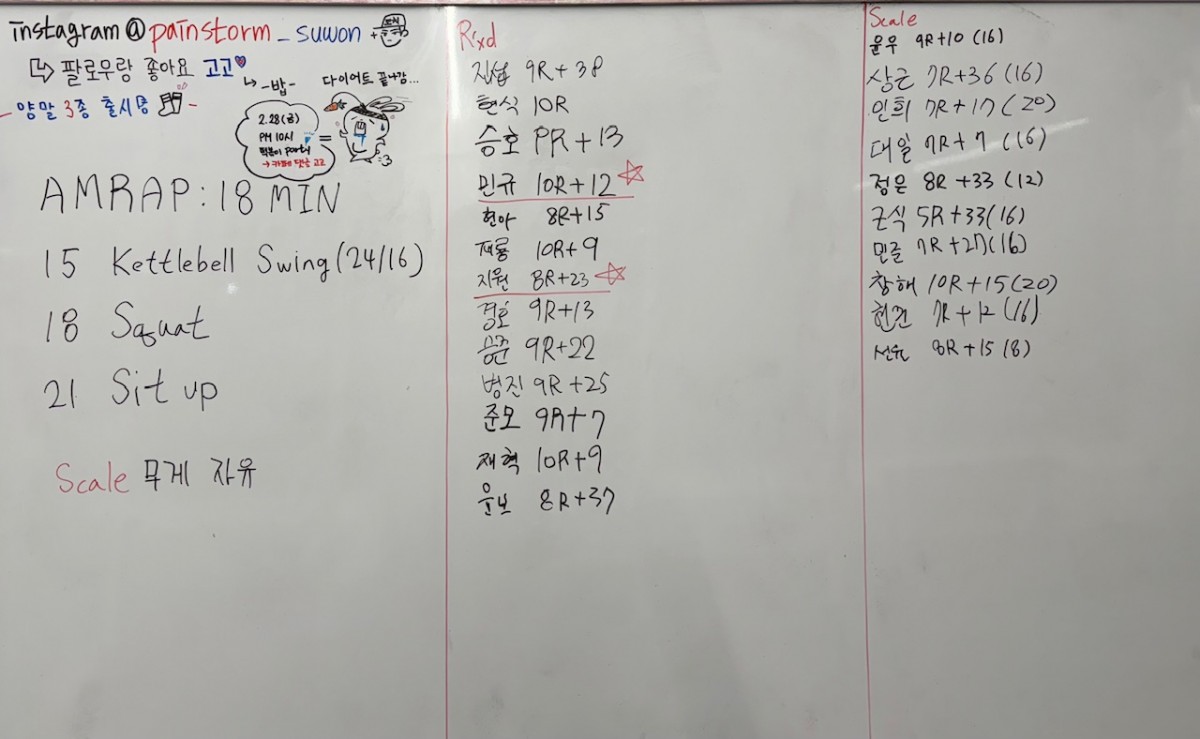 instagram@painstorm_suwon +
팔로우랑 좋아요 고고
-밥-
다이어트 끝나감...
- 양말 3종 출시중 -
2.28(금)
PM 10시
떡볶이 party
→ 카페 댓글 고고
=
AMRAP : 18 MIN
15 Kettlebell Swing (24/16)
18 Squat
21 Sit up
Scale 무게 자유
Rxd
진섭 9R + 38
현식 10R
승호 PR + 13
민규 10R+12
현아 8R+15
재룡 10R+9
지원 8R+23
경호 9R+13
9R+22
병진 9R+25
준모 9R+7
재혁 10R+9
윤보 8R+37
Scale
윤우 9R+10 (16)
상근 7R+36 (16)
인희 7R+17 (20)
대일 7R+7 (16)
정은 8R+33 (12)
근식 5R+33 (16)
민준 7R+27 (16)
창해 10R+15 (20)
7R+12 (16)
선유 8R+15 (8)